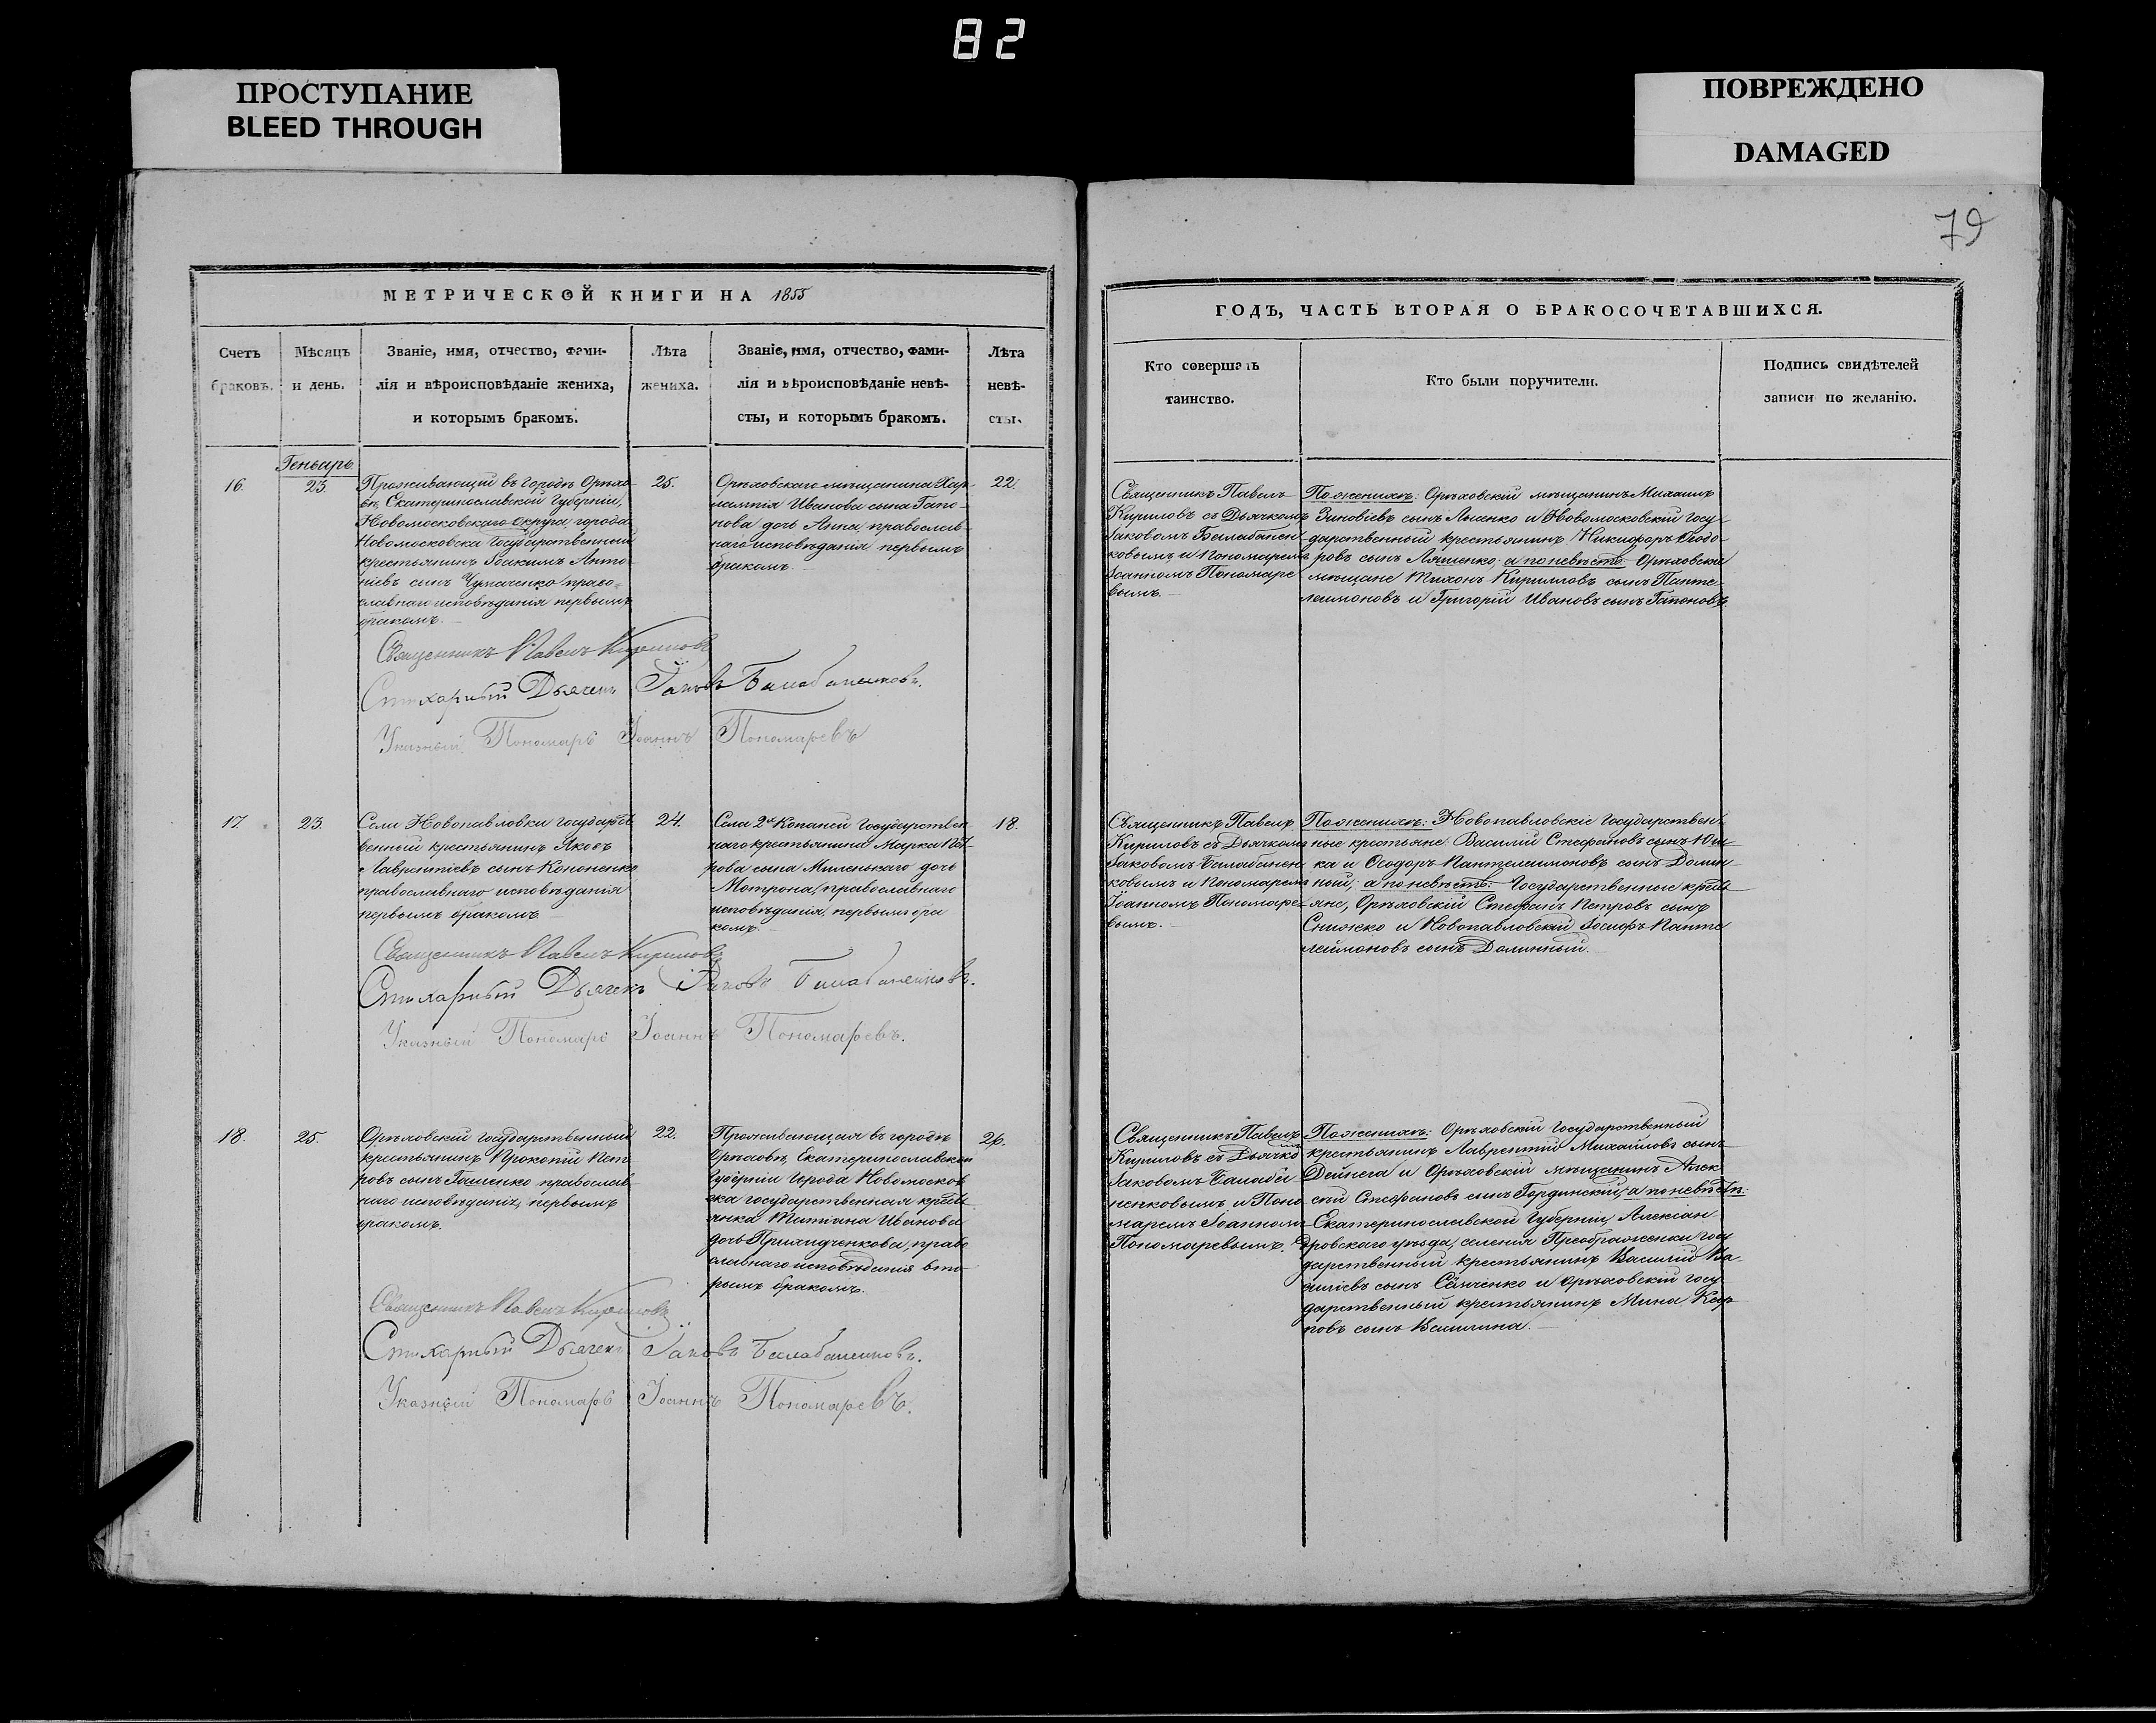 82
ПРОСТУПАНИЕ
BLEED THROUGH
ПОВРЕЖДЕНО
DAMAGED
79
МЕТРИЧЕСКОЙ КНИГИ НА 1855
Счетъ браковъ.
Мѣсяцъ и день.
Званіе, имя, отчество, фами-
лія и вѣроисповѣданіе жениха,
и которымъ бракомъ.
Лѣта жениха.
Званіе, имя, отчество, фами-
лія и вѣроисповѣданіе невѣ-
сты, и которымъ бракомъ.
Лѣта невѣ-
сты.
ГОДЪ, ЧАСТЬ ВТОРАЯ О БРАКОСОЧЕТАВШИХСЯ.
Кто совершалъ
таинство.
Кто были поручители.
Подпись свидѣтелей
записи по желанію.
Генварь
16.
23.
Проживающій въ городѣ Орѣхо-
вѣ, Екатеринославской Губерніи,
Новомосковскаго округа, города
Новомосковска Государственный
крестьянинъ Іоакимъ Анто-
ніевъ сынъ Чумаченко право-
славнаго исповѣданія первымъ
бракомъ.
25.
Орѣховскаго мѣщанина Хар-
лампія Иванова сына Гапо-
нова дочь Анна, православ-
наго исповѣданія первымъ
бракомъ.
22.
Священникъ Павелъ
Кириловъ съ Дьячкомъ
Іаковомъ Балабанен-
ковымъ и Пономаремъ
Іоанномъ Пономаре-
вымъ.
По женихѣ: Орѣховскій мѣщанинъ Михаилъ
Зиновіевъ сынъ Лысенко и Новомосковскій Госу-
дарственный крестьянинъ Никифоръ Ѳеодо-
ровъ сынъ Ляшенко; а по невѣстѣ: Орѣховскіе
мѣщане Тихонъ Кирилловъ сынъ Панте-
леимоновъ и Григорій Ивановъ сынъ Гапоновъ.
Священникъ Павелъ Кириловъ
Стихарный Дьячекъ Іаковъ Балабаненковъ.
Указный Пономарь Іоаннъ Пономаревъ
17.
23.
Села Новопавловки Государст
венный крестьянинъ Яковъ
Лаврентіевъ сынъ Кононенко
православнаго исповѣданія
первымъ бракомъ.
24.
Села 2й Копаней Государствен
наго крестьянина Марка Пет
рова сына Миленькаго дочь
Мотрона, православнаго
исповѣданія, первымъ бра
комъ.
18.
Священникъ Павелъ
Кириловъ съ Дьячкомъ
Іаковомъ Балабанен
ковымъ и Пономаремъ
Іоанномъ Пономаре-
вымъ.
По женихѣ: Новопавловскіе Государствен
ные крестьяне: Василій Стефановъ сынъ
ка и Ѳеодоръ Пантелеимоновъ сынъ Долин
ной; а по невѣстѣ: Государственные кресть
яне, Орѣховскій Стефанъ Петровъ сынъ
Снижко и Новопавловскій Іосифъ Панте
леймоновъ сынъ Долинный.
Священникъ Павелъ Кириловъ
Стихарный Дьячекъ Іаковъ Балабаненковъ.
Указный Пономарь Іоаннъ Пономаревъ.
18.
25.
Орѣховскій Государственный
крестьянинъ Прокопій Пет
ровъ сынъ православ
наго исповѣданія, первымъ
бракомъ.
22.
Проживающая въ городѣ
Орѣховѣ, Екатеринославской
Губерніи города Новомосков
ска государственная кресть
янка Татіана Иванова
дочь право
славнаго исповѣданія вто-
рымъ бракомъ.
26.
Священникъ Павелъ
Кириловъ съ Дьячко
Іаковомъ Балаба-
ненковымъ и Поно
маремъ Іоанномъ
Пономаревымъ.
По женихѣ: Орѣховскій Государственный
крестьянинъ Лаврентій Михайловъ сынъ
Дейнега и Орѣховскій мѣщанинъ Алек
сѣй Стефановъ сынъ Гординскій; а по невѣстѣ:
Екатеринославской Губерніи, Алексан
дровскаго уѣзда, селенія Преображенки госу
дарственный крестьянинъ Василій Ва-
силіевъ сынъ и Орѣховскій госу
дарственный крестьянинъ Мина Кар
повъ сынъ
Священникъ Павелъ Кириловъ
Стихарный Дьячекъ Іаковъ Балабаненковъ.
Указный Пономарь Іоаннъ Пономаревъ.